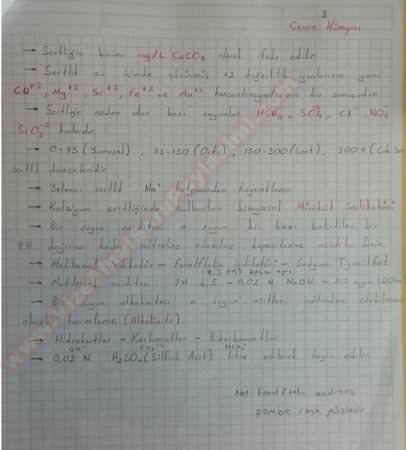 3
Çevre Kimyası
→ Sertliğin birimi mg/L CaCO3 olarak ifade edilir.
→ Sertlik su içinde çözünmüş +2 değerlikli iyonların yani
Ca+2, Mg+2, Sr+2, Fe+2 ve Mn+2 konsantrasyonlarının bir
→ Sertliğe neden olan bazı anyonlar HCO3-, SO4, Cl-, NO3
SiO3
→ 0-75 (Yumuşak), 75-150 (Orta), 150-300 (Sert), 300+ (Çok
sertlik dereceleridir.
→ Yalancı sertlik Na+ kaynaklanır.
→ Kalsiyum sertliğinde kullanılan kimyasal Müreksit indikatörü
→ Bir suyun asiditesi o suyun bir bazı belirtilen bir
PH değerine kadar nötralize edebilme kapasitesine asidite denir.
→ Metiloranj indikatör - Fenolftalein indikatörü - Sodyum Tiyosülfat
→ Metiloranj asiditesi PH 4,5 - 0,02 N NaOH - 50 100ml
→ Bir suyun alkalinitesi o suyun asitleri nötralize edebilmesi
olarak tanımlanır. (Alkalinite)
→ Hidroksitler - Karbonatlar - Bikarbonatlar
OH- CO3 HCO3
→ 0,02 N H2SO4 (Sülfürik Asit) titre edilerek tayin edilir.
Not: Fenolftalein asiditesi
pembe renk gözlenir.